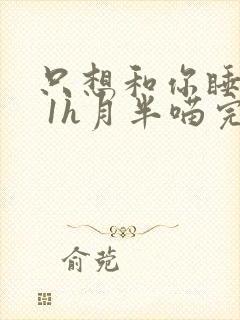 只想和你睡
1h月半喵完
俞苑